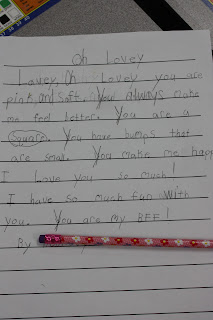 Oh Lovey
Lovey, Oh Lovey you are
pink, and soft. Your always make
me feel better. You are a
Square. You have bumps that
are small. You make me happ
I love you so much!
I have so much fun with
you. You are my BFF!
By